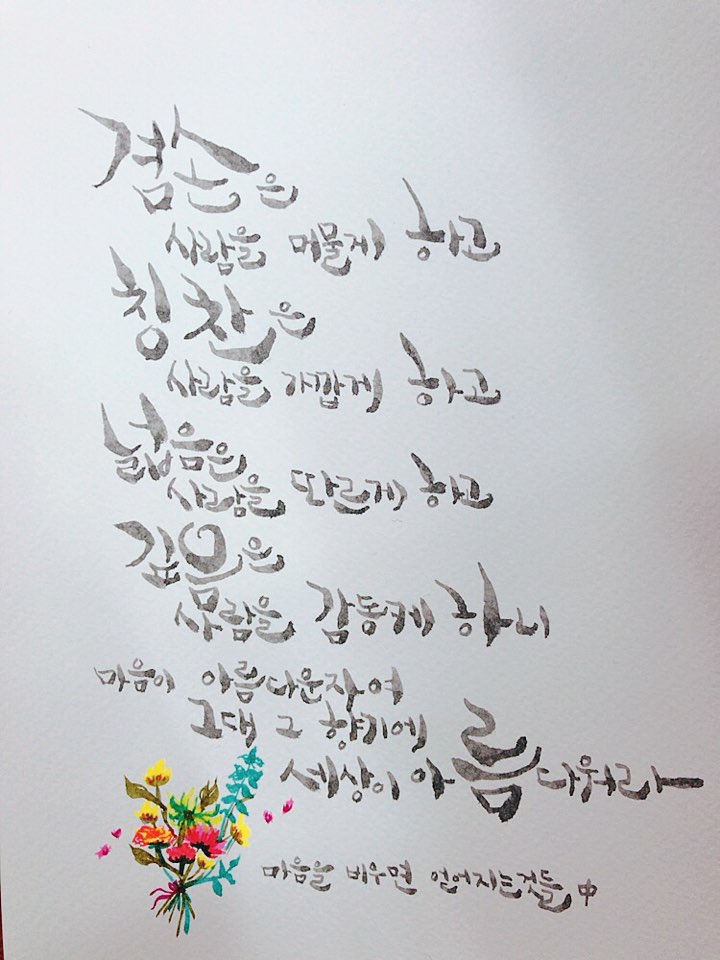 겸손은
사람을 머물게 하고
칭찬은
사람을 가깝게 하고
넓음은
사람을 따르게 하고
깊음은
사람을 감동케 하니
마음이 아름다운자여
그대 그 향기에
세상이 아름다워라
마음을 비우면 얻어지는것들 中